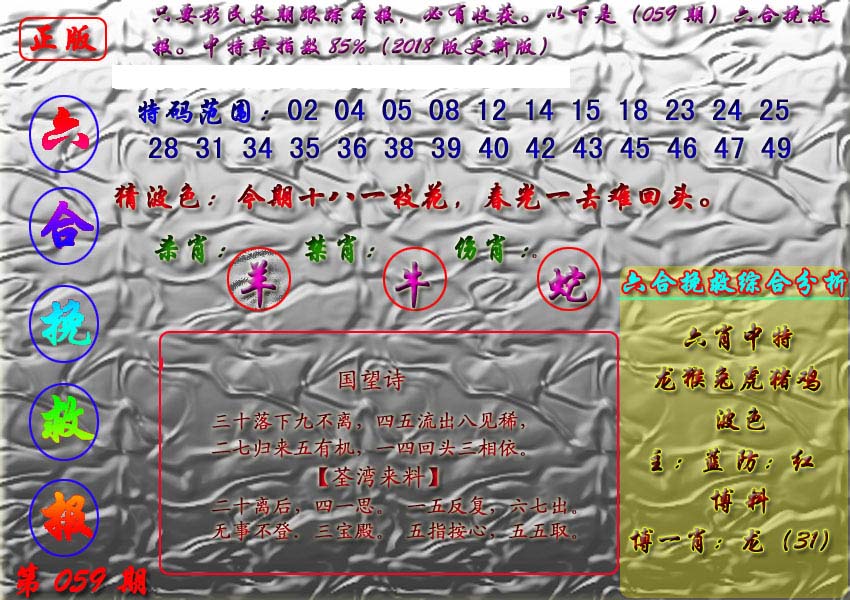 正版
只要彩民长期跟踪本报，必有收获。以下是（059期）六合挽救
报。中特率指数85%（2018版更新版）
六合挽救报
第059期
特码范围：02 04 05 08 12 14 15 18 23 24 25
28 31 34 35 36 38 39 40 42 43 45 46 47 49
猜波色：今期十八一枝花，春光一去难回头。
杀肖：羊 禁肖：牛 伤肖：蛇。
国望诗
三十落下九不离，四五流出八见稀，
二七归来五有机，一四回头三相依。
【荃湾来料】
二十离后，四一思。 一五反复，六七出。
无事不登．三宝殿。 五指按心，五五取。
六合挽救综合分析
六肖中特
龙猴兔虎猪鸡
波色
主：蓝防：红
博料
博一肖：龙（31）